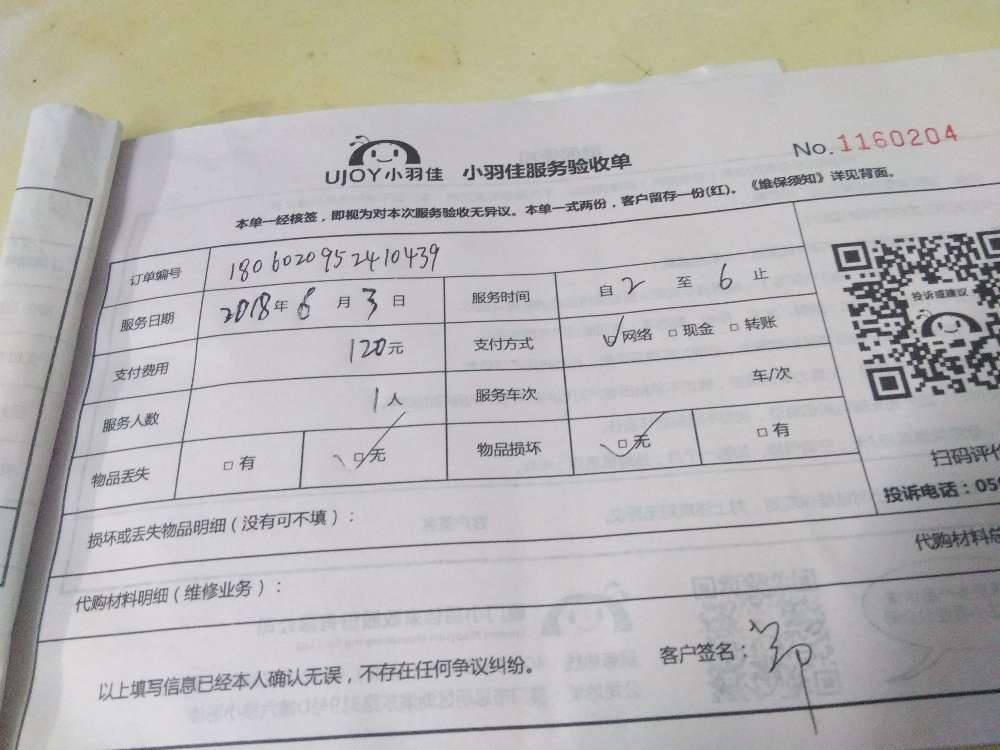 UJOY小羽佳 小羽佳服务验收单
No.1160204
本单一经核签，即视为对本次服务验收无异议。本单一式两份，客户留存一份(红)。《维保须知》详见背面。
订单编号 1806020952410439
服务日期 2018年6月3日 服务时间 自2至6止
支付费用 120元 支付方式 网络 □现金 □转账
服务人数 1人 服务车次 车/次
物品丢失 □有 □无 物品损坏 □无 □有
投诉或建议
扫码评价
投诉电话：059
损坏或丢失物品明细（没有可不填）：
代购材料总
代购材料明细（维修业务）：
以上填写信息已经本人确认无误，不存在任何争议纠纷。 客户签名：